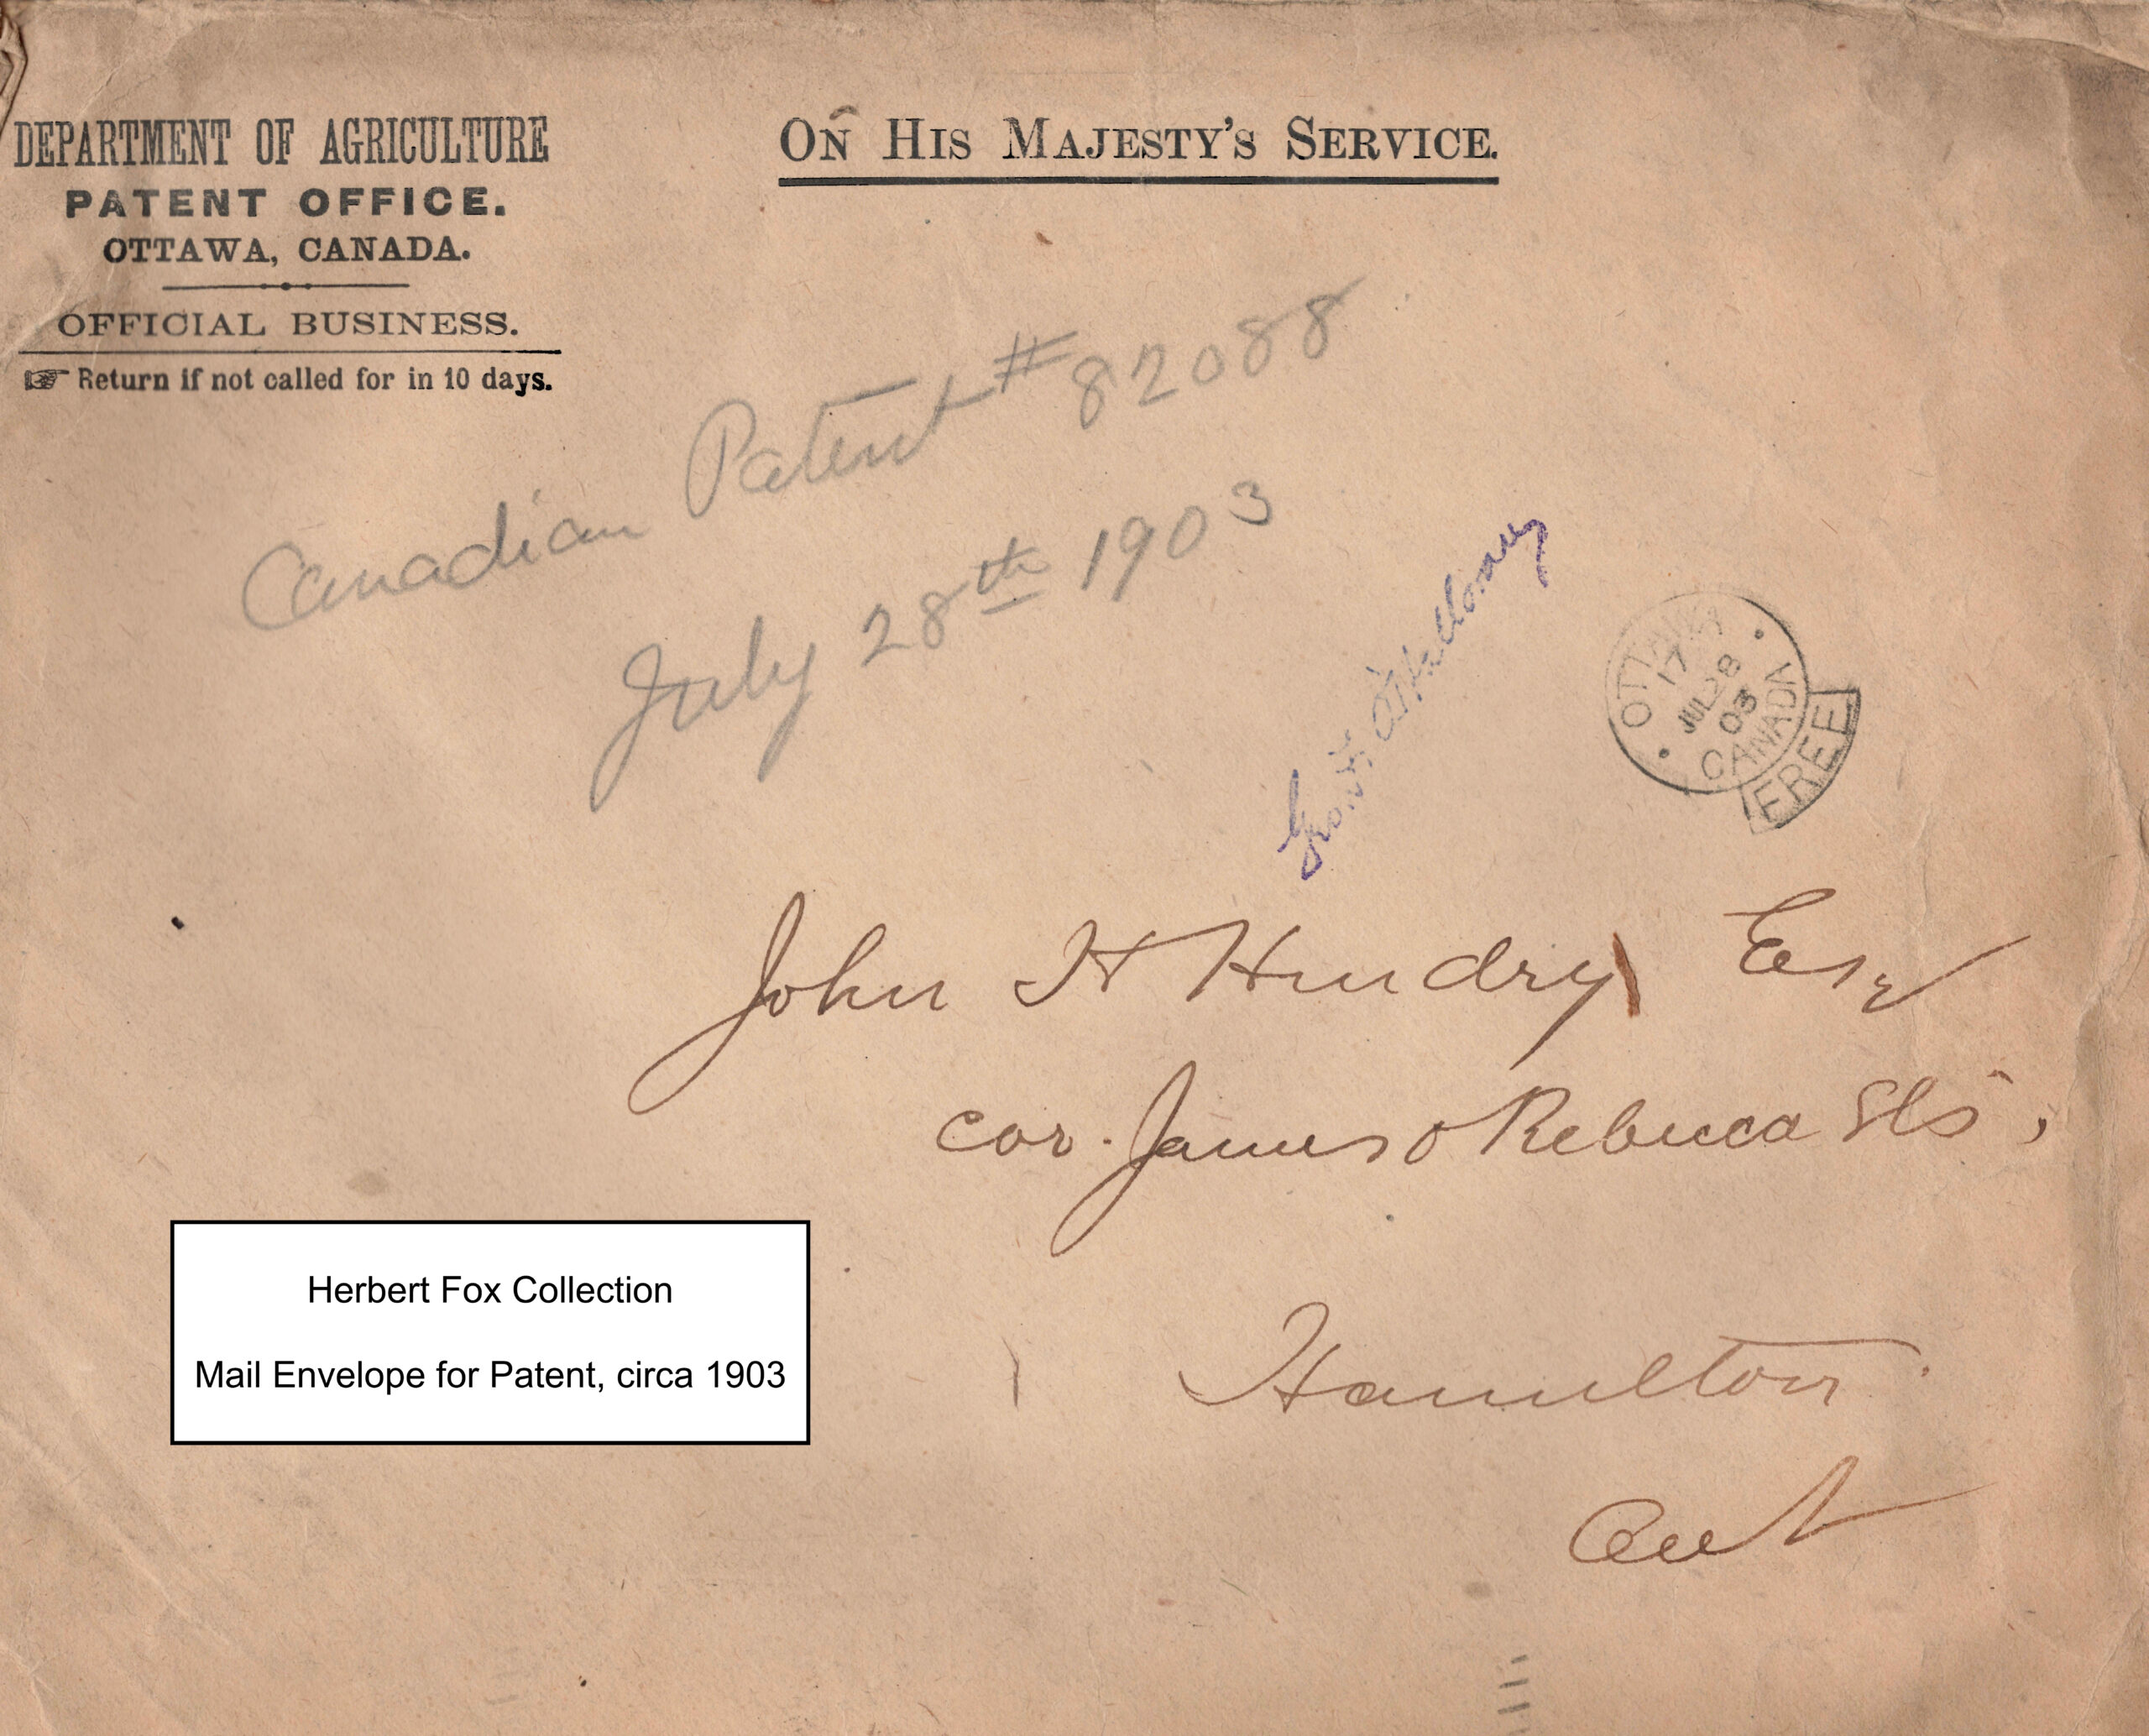 DEPARTMENT OF AGRICULTURE
PATENT OFFICE.
OTTAWA, CANADA.
OFFICIAL BUSINESS.
☞ Return if not called for in 10 days.
ON HIS MAJESTY'S SERVICE.
Canadian Patent #82088
July 28th 1903
Geo. F.
OTTAWA
17
JUL 28
03
CANADA
FREE
John H Hendry Esq
cor. James & Rebecca Sts,
Hamilton
Ont
Herbert Fox Collection
Mail Envelope for Patent, circa 1903